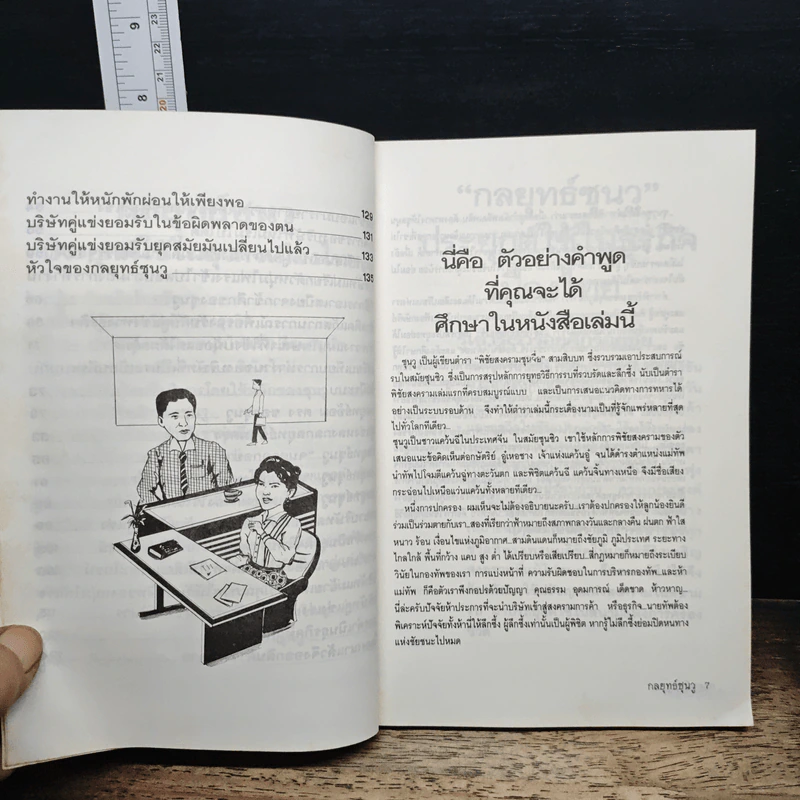 9
8
23
22
21
20
ทำงานให้หนักพักผ่อนให้เพียงพอ 129
บริษัทคู่แข่งยอมรับในข้อผิดพลาดของตน 131
บริษัทคู่แข่งยอมรับยุคสมัยมันเปลี่ยนไปแล้ว 133
หัวใจของกลยุทธ์ซุนวู 135
"กลยุทธ์ซุนวู"
นี่คือ ตัวอย่างคำพูด
ที่คุณจะได้
ศึกษาในหนังสือเล่มนี้
ซุนวู เป็นผู้เขียนตำรา "พิชัยสงครามซุนจื่อ" สามสิบบท ซึ่งรวบรวมเอาประสบการณ์
รบในสมัยชุนชิว ซึ่งเป็นการสรุปหลักการยุทธวิธีการรบที่รวบรัดและลึกซึ้ง นับเป็นตำรา
พิชัยสงครามเล่มแรกที่ครบสมบูรณ์แบบ และเป็นการเสนอแนวคิดทางการทหารได้
อย่างเป็นระบบรอบด้าน จึงทำให้ตำราเล่มนี้กระเดื่องนามเป็นที่รู้จักแพร่หลายที่สุด
ไปทั่วโลกทีเดียว..
ซุนวูเป็นชาวแคว้นฉีในประเทศจีน ในสมัยชุนชิว เขาใช้หลักการพิชัยสงครามของตัว
เสนอแนะข้อคิดเห็นต่อกษัตริย์ อู๋เหอชาง เจ้าแห่งแคว้นอู๋ จนได้ดำรงตำแหน่งแม่ทัพ
นำทัพไปโจมตีแคว้นฉู่ทางตะวันตก และพิชิตแคว้นฉี แคว้นจิ้นทางเหนือ จึงมีชื่อเสียง
กระฉ่อนไปเหนือแว่นแคว้นทั้งหลายทีเดียว..
หนึ่งการปกครอง ผมเห็นจะไม่ต้องอธิบายนะครับ...เราต้องปกครองให้ลูกน้องยินดี
ร่วมเป็นร่วมตายกับเรา..สองที่เรียกว่าฟ้าหมายถึงสภาพกลางวันและกลางคืน ฝนตก ฟ้าใส
หนาว ร้อน เงื่อนไขแห่งภูมิอากาศ...สามดินแดนก็หมายถึงชัยภูมิ ภูมิประเทศ ระยะทาง
ไกลใกล้ พื้นที่กว้าง แคบ สูง ต่ำ ได้เปรียบหรือเสียเปรียบ..สี่กฎหมายก็หมายถึงระเบียบ
วินัยในกองทัพของเรา การแบ่งหน้าที่ ความรับผิดชอบในการบริหารกองทัพ...และห้า
แม่ทัพ ก็คือตัวเราพึงกอปรด้วยปัญญา คุณธรรม อุดมการณ์ เด็ดขาด ห้าวหาญ...
นี่ล่ะครับปัจจัยห้าประการที่จะนำบริษัทเข้าสู่สงครามการค้า หรือธุรกิจ...นายทัพต้อง
พิเคราะห์ปัจจัยทั้งห้านี้ให้ลึกซึ้ง ผู้ลึกซึ้งเท่านั้นเป็นผู้พิชิต หากรู้ไม่ลึกซึ้งย่อมปิดหนทาง
แห่งชัยชนะไปหมด
กลยุทธ์ซุนวู 7